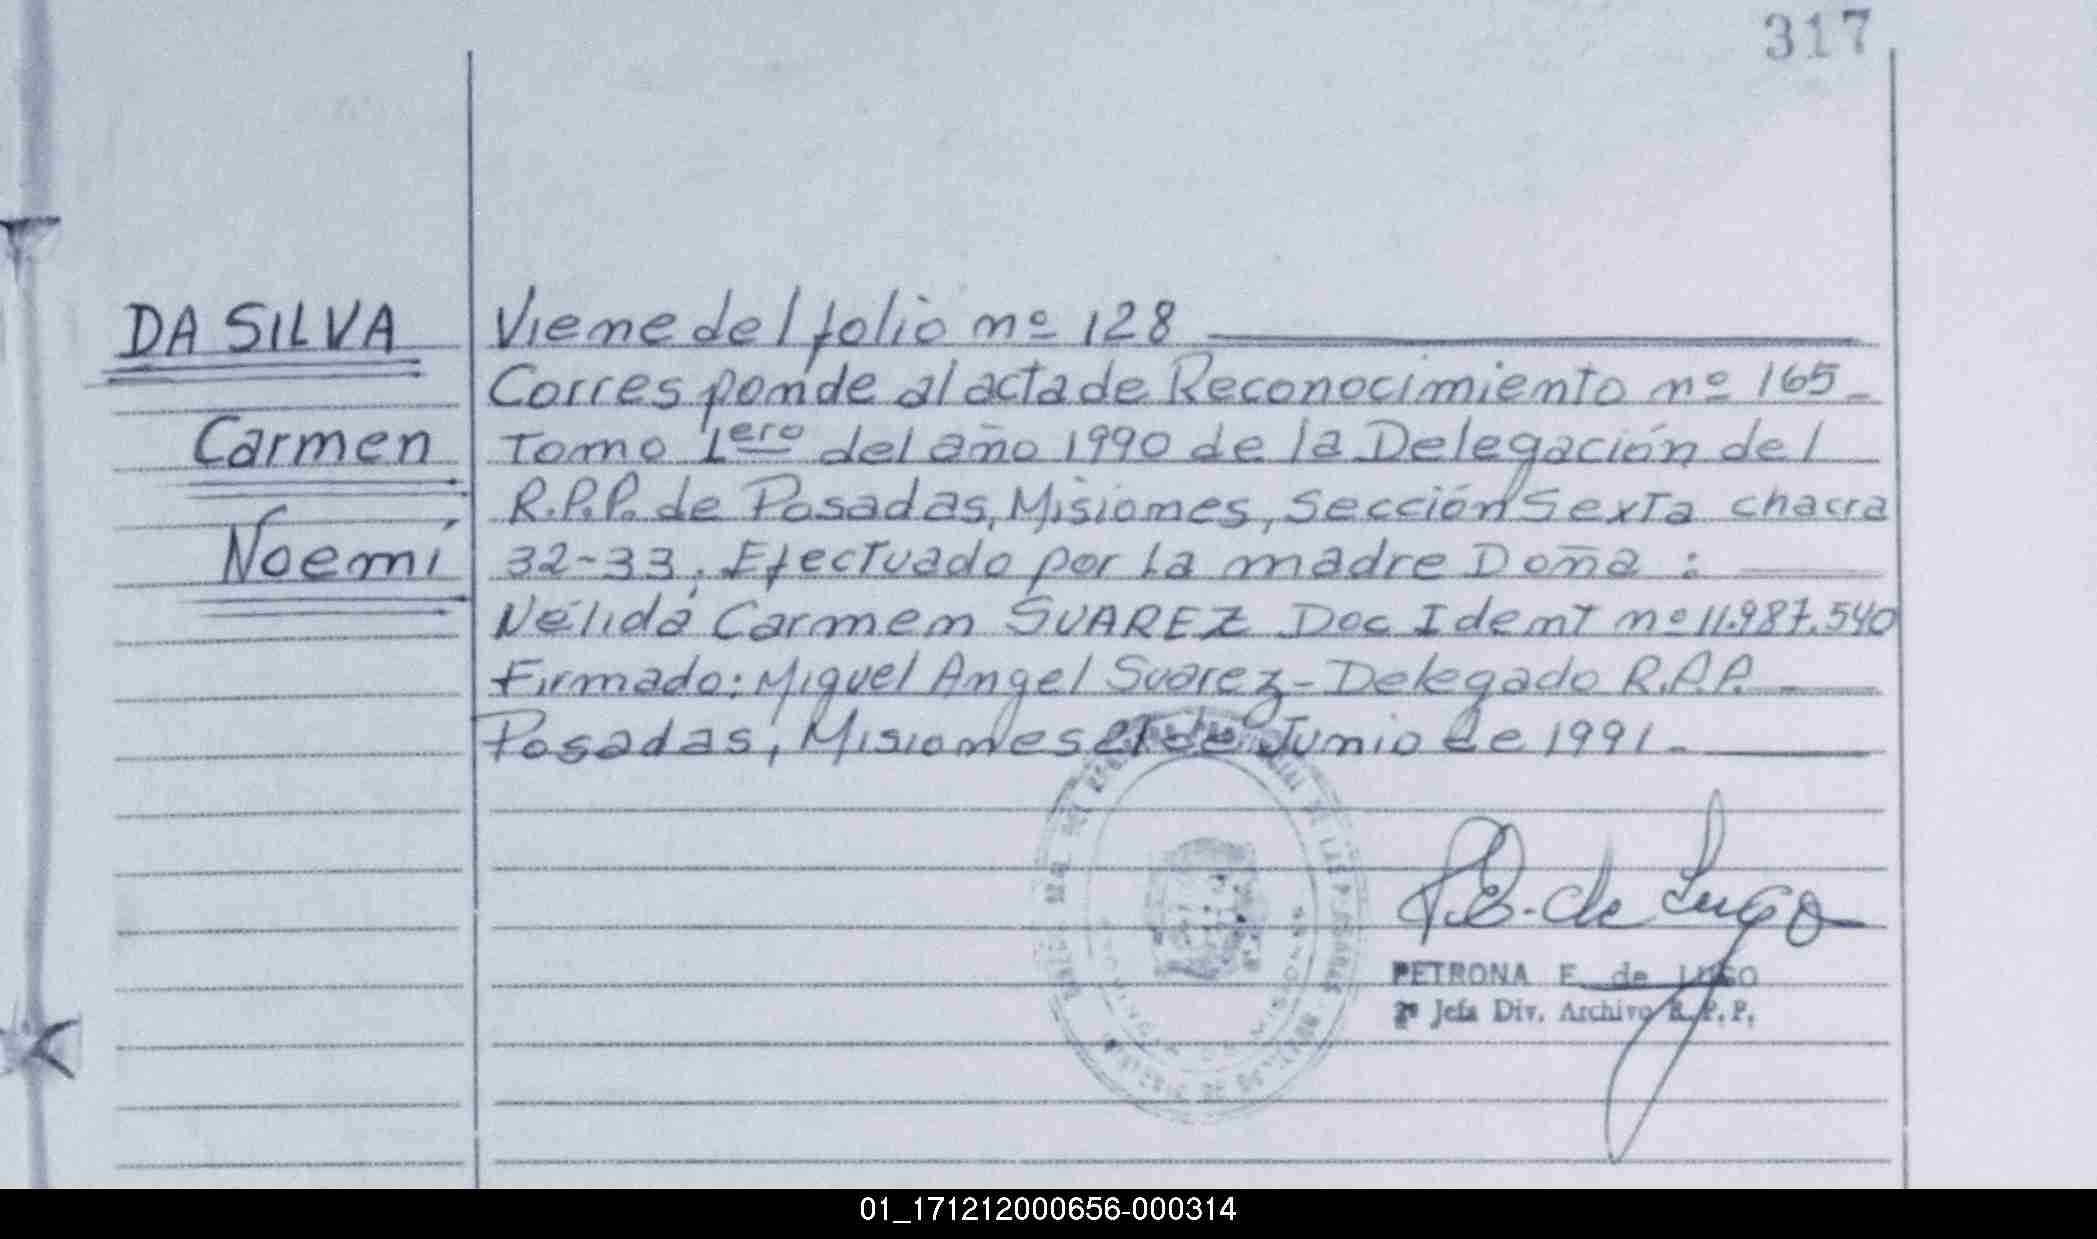 317
DA SILVA
Carmen
Noemí
Viene del folio nº 128
Corresponde al acta de Reconocimiento nº 165-
Tomo 1ero del año 1990 de la Delegación del
R.P.P. de Posadas, Misiones, Sección Sexta chacra
32-33, Efectuado por la madre Doña:
Nélida Carmen SUAREZ Doc Ident nº 11.987.540
Firmado: Miguel Angel Suarez - Delegado R.P.P.
Posadas, Misiones de Junio de 1991.
P.E. de Lugo
PETRONA E. de LUGO
2º Jefa Div. Archivo R.P.P.
01_171212000656-000314